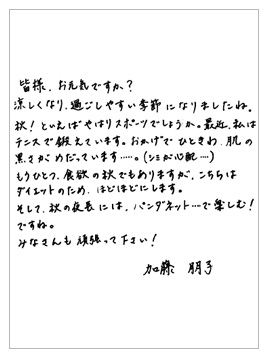 皆様、お元気ですか？
涼しくなり、過ごしやすい季節になりましたね。
秋！といえばやはりスポーツでしょうか。最近、私は
テニスで鍛えています。おかげでひときわ、肌の
黒さがめだっています……。(シミが心配…)
もうひとつ、食欲の秋でもありますが、こちらは
ダイエットのため、ほどほどにします。
そして、秋の夜長には、パンダネット…で楽しむ！
ですね。
みなさんも頑張って下さい！
加藤 朋子